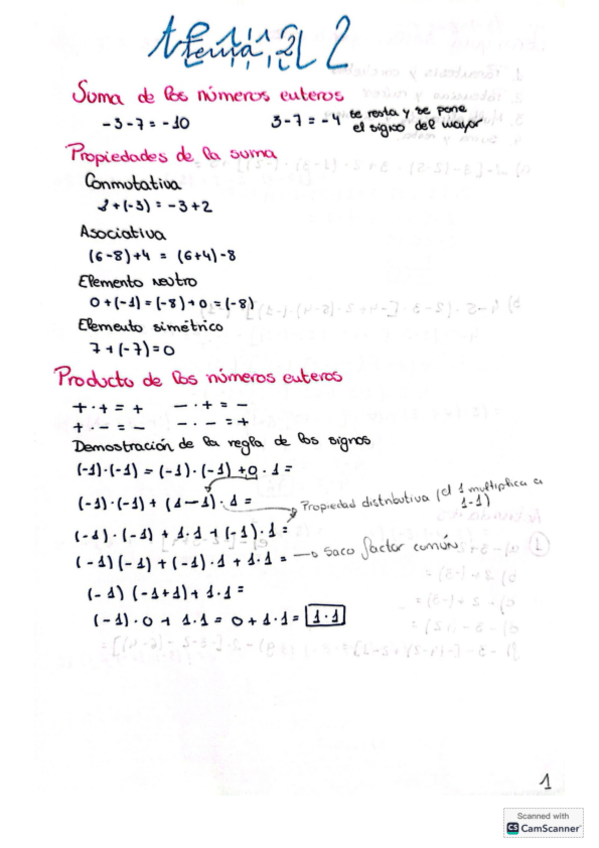 tema 2
Suma de los números enteros
-3-7=-10    3-7=-4 se resta y se pone
el signo del mayor
Propiedades de la suma
Conmutativa
2+(-3)=-3+2
Asociativa
(6-8)+4 = (6+4)-8
Elemento neutro
0+(-1)=(-8)+0=(-8)
Elemento simétrico
7+(-7)=0
Producto de los números enteros
+·+=+    -·+=-
+·-=-    -·-=+
Demostración de la regla de los signos
(-1)·(-1)=(-1)·(-1)+0·1=
(-1)·(-1)+(1-1)·1=
Propiedad distributiva (el 1 multiplica a
1-1)
(-1)·(-1)+1·1+(-1)·1=
(-1)(-1)+(-1)·1+1·1= → saco factor común
(-1)(-1+1)+1·1=
(-1)·0+1·1=0+1·1=1·1
1
Scanned with
CS CamScanner